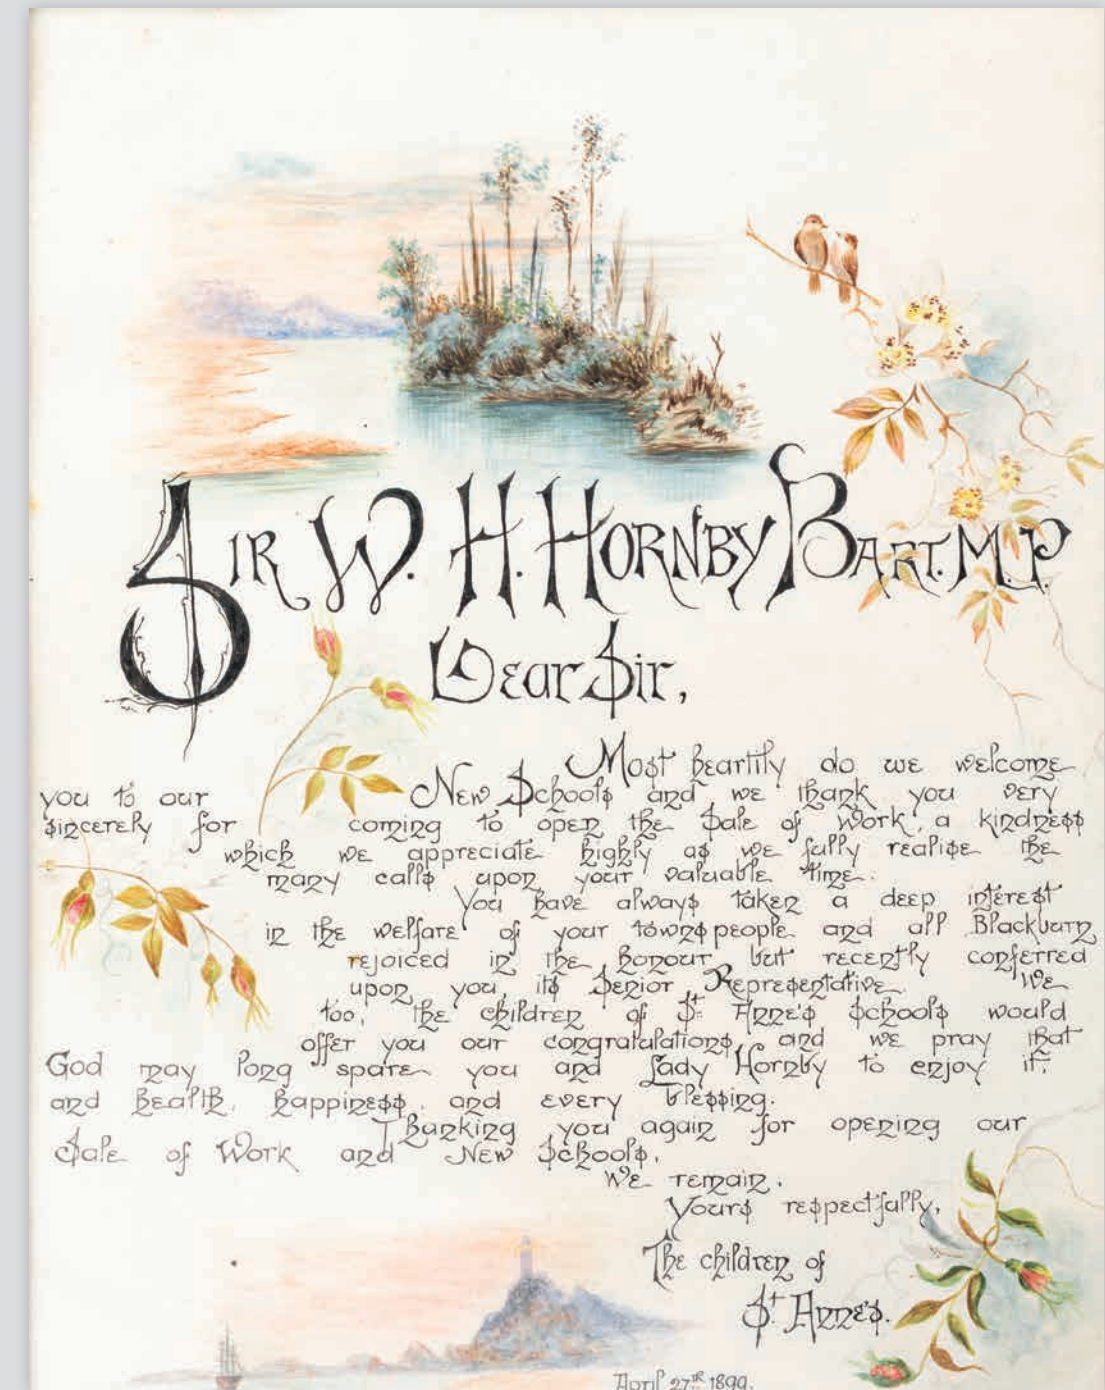 SIR W. H. HORNBY BART. M.P.
Dear Sir,
Most heartily do we welcome
you to our New Schools and we thank you very
sincerely for coming to open the Sale of Work, a kindness
which we appreciate highly as we fully realise the
many calls upon your valuable time.
You have always taken a deep interest
in the welfare of your townspeople and all Blackburn
rejoiced in the honour but recently conferred
upon you, its Senior Representative. We
too, the children of St. Anne's Schools would
offer you our congratulations, and we pray that
God may long spare you and Lady Hornby to enjoy it,
and health, happiness, and every blessing.
Thanking you again for opening our
Sale of Work and New Schools,
We remain,
Yours respectfully,
The children of
St. Anne's.
April 27th 1899.